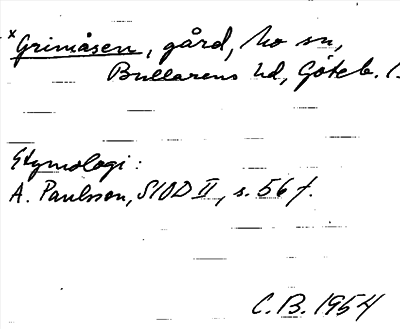 × Grimåsen, gård, Mo sn,
Bullarens hd, Göteb. l.
Etymologi:
A. Paulsson, SIOD II, s. 56 f.
C.B. 1954